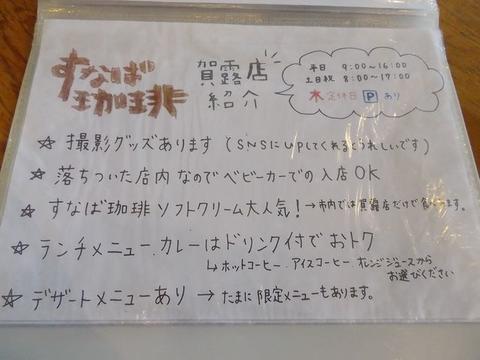 すなば珈琲
賀露店紹介
平日 9:00~16:00
土日祝 8:00~17:00
木 定休日 P あり
☆ 撮影グッズあります (SNSにUPしてくれるとうれしいです)
☆ 落ちついた店内なのでベビーカーでの入店OK
☆ すなば珈琲ソフトクリーム大人気! → 市内では賀露店だけで食べれます。
☆ ランチメニュー、カレーはドリンク付でおトク
↳ ホットコーヒー、アイスコーヒー、オレンジジュースから
お選びください
☆ デザートメニューあり → たまに限定メニューもあります。